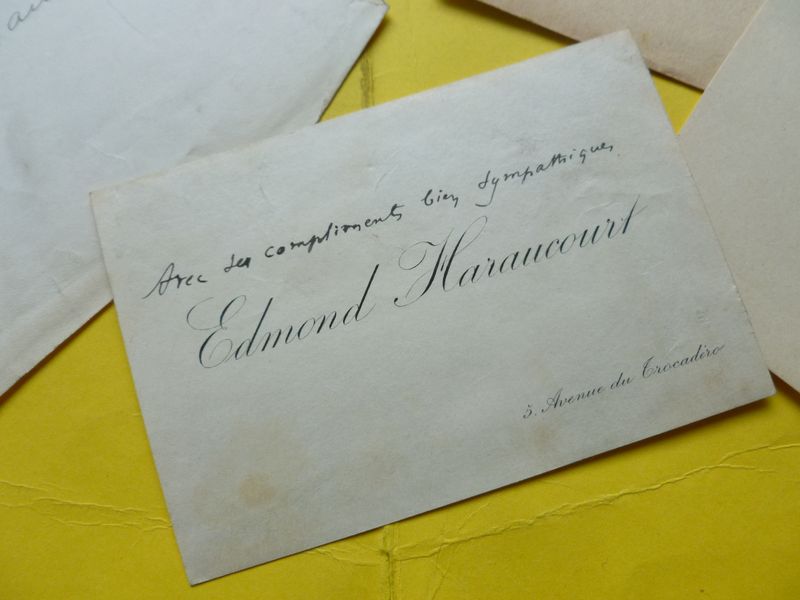 Avec ses compliments bien sympathiques
Edmond Haraucourt
5. Avenue du Trocadéro